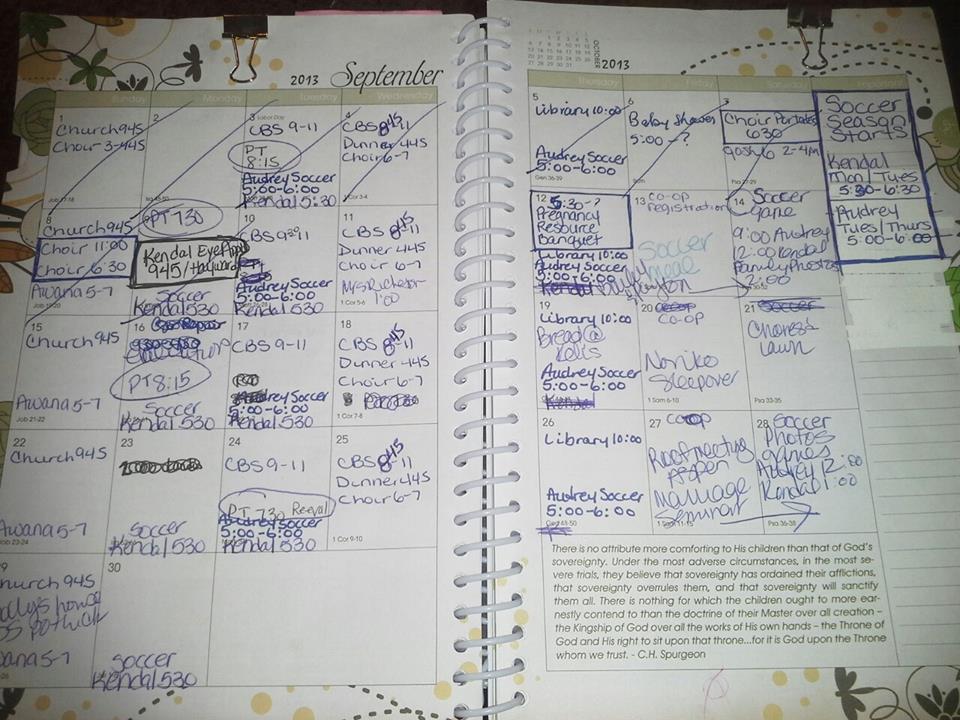 2013 September
Sunday
Monday
Tuesday
Wednesday
1
Church 945
Choir 3-445
2
3
Labor Day
CBS 9-11
PT
8:15
Audrey Soccer
5:00-6:00
Kendal 530
4
CBS 845-11
Dunner 445
Choir 6-7
8
Church 945
Choir 11:00
Choir 6:30
Awana 5-7
PT 730
Kendal Eye Appt
945/Hayward
Soccer
Kendal 530
10
CBS 930-11
Audrey Soccer
5:00-6:00
Kendal 530
11
CBS 845-11
Dunner 445
Choir 6-7
1:00
1 Cor 5-6
15
Church 945
Awana 5-7
Job 21-22
16
PT 8:15
Soccer
Kendal 530
17
CBS 9-11
Audrey Soccer
5:00-6:00
Kendal 530
18
CBS 845-11
Dunner 445
Choir 6-7
1 Cor 7-8
22
Church 945
Awana 5-7
Job 23-24
23
Soccer
Kendal 530
24
CBS 9-11
PT 730 Re-eval
Audrey Soccer
5:00-6:00
Kendal 530
25
CBS 845-11
Dunner 445
Choir 6-7
1 Cor 9-10
Church 945
30
Soccer
Kendal 530
OCTOBER
2013
Thursday
Friday
Saturday
Important
5
Library 10:00
Audrey Soccer
5:00-6:00
Gen 36-39
6
Baby Shower
5:00-?
Choir Portraits
630
2-4pm
Psa 27-29
Soccer
Season
Starts
Kendal
Mon/Tues
5:30-6:30
Audrey
Tues/Thurs
5:00-6:00
12
5:30-?
Pregnancy
Resource
Banquet
Library 10:00
Audrey Soccer
5:00-6:00
13
Co-op
registration
Soccer
14
Soccer
game
9:00 Audrey
12:00 Kendal
Family Photos
19
Library 10:00
Bread @
Audrey Soccer
5:00-6:00
20
Co-op
Sleepover
1 Sam 6-10
21
Lawn
Psa 33-35
26
Library 10:00
Audrey Soccer
5:00-6:00
27
Co-op
Marriage
Seminar
1 Sam 11-15
28
Soccer
Photos
games
Audrey 12:00
Kendal 1:00
Psa 36-38
There is no attribute more comforting to His children than that of God's
sovereignty. Under the most adverse circumstances, in the most se-
vere trials, they believe that sovereignty has ordained their afflictions,
that sovereignty overrules them, and that sovereignty will sanctify
them all. There is nothing for which the children ought to more ear-
nestly contend to than the doctrine of their Master over all creation –
the Kingship of God over all the works of His own hands – the Throne of
God and His right to sit upon that throne...for it is God upon the Throne
whom we trust. - C.H. Spurgeon